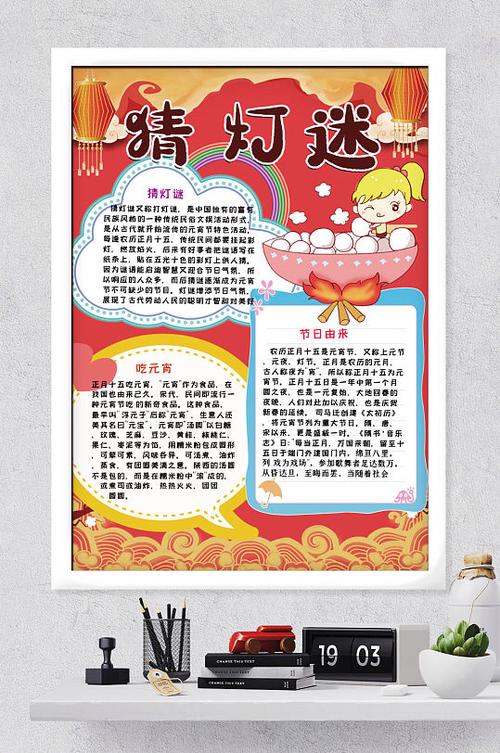 猜灯谜
猜灯谜
猜灯谜又称打灯谜，是中国独有的富有
民族风格的一种传统民俗文娱活动形式，
是从古代就开始流传的元宵节特色活动。
每逢农历正月十五，传统民间都要挂起彩
灯，燃放焰火，后来有好事者把谜语写在
纸条上，贴在五光十色的彩灯上供人猜。
因为谜语能启迪智慧又迎合节日气氛，所
以响应的人众多，而后猜谜逐渐成为元宵
节不可缺少的节目。灯谜增添节日气氛，
展现了古代劳动人民的聪明才智和对美好
节日由来
农历正月十五是元宵节，又称上元节
、元夜、灯节。正月是农历的元月，
古人称夜为“宵”，所以称正月十五为元
宵节。正月十五日是一年中第一个月
圆之夜，也是一元复始，大地回春的
夜晚，人们对此加以庆祝，也是庆贺
新春的延续。司马迁创建《太初历》
，将元宵节列为重大节日。隋、唐、
宋以来，更是盛极一时。《隋书·音乐
志》日：“每当正月，万国来朝，留至十
五日于端门外建国门内，绵亘八里，
列戏为戏场”，参加歌舞者足达数万，
从昏达旦，至晦而罢。当随着社会
吃元宵
正月十五吃元宵，“元宵”作为食品，在
我国也由来已久。宋代，民间即流行一
种元宵节吃的新奇食品。这种食品，
最早叫“浮元子”后称“元宵”，生意人还
美其名曰“元宝”。元宵即“汤圆”以白糖
、玫瑰、芝麻、豆沙、黄桂、核桃仁、
果仁、枣泥等为馅，用糯米粉包成圆形
，可荤可素，风味各异。可汤煮、油炸
、蒸食，有团圆美满之意。陕西的汤圆
不是包的，而是在糯米粉中“滚”成的，
或煮司或油炸，热热火火，团团
圆圆。
CHANGE THIS TEXT
CHANGE THIS TEXT
19 03